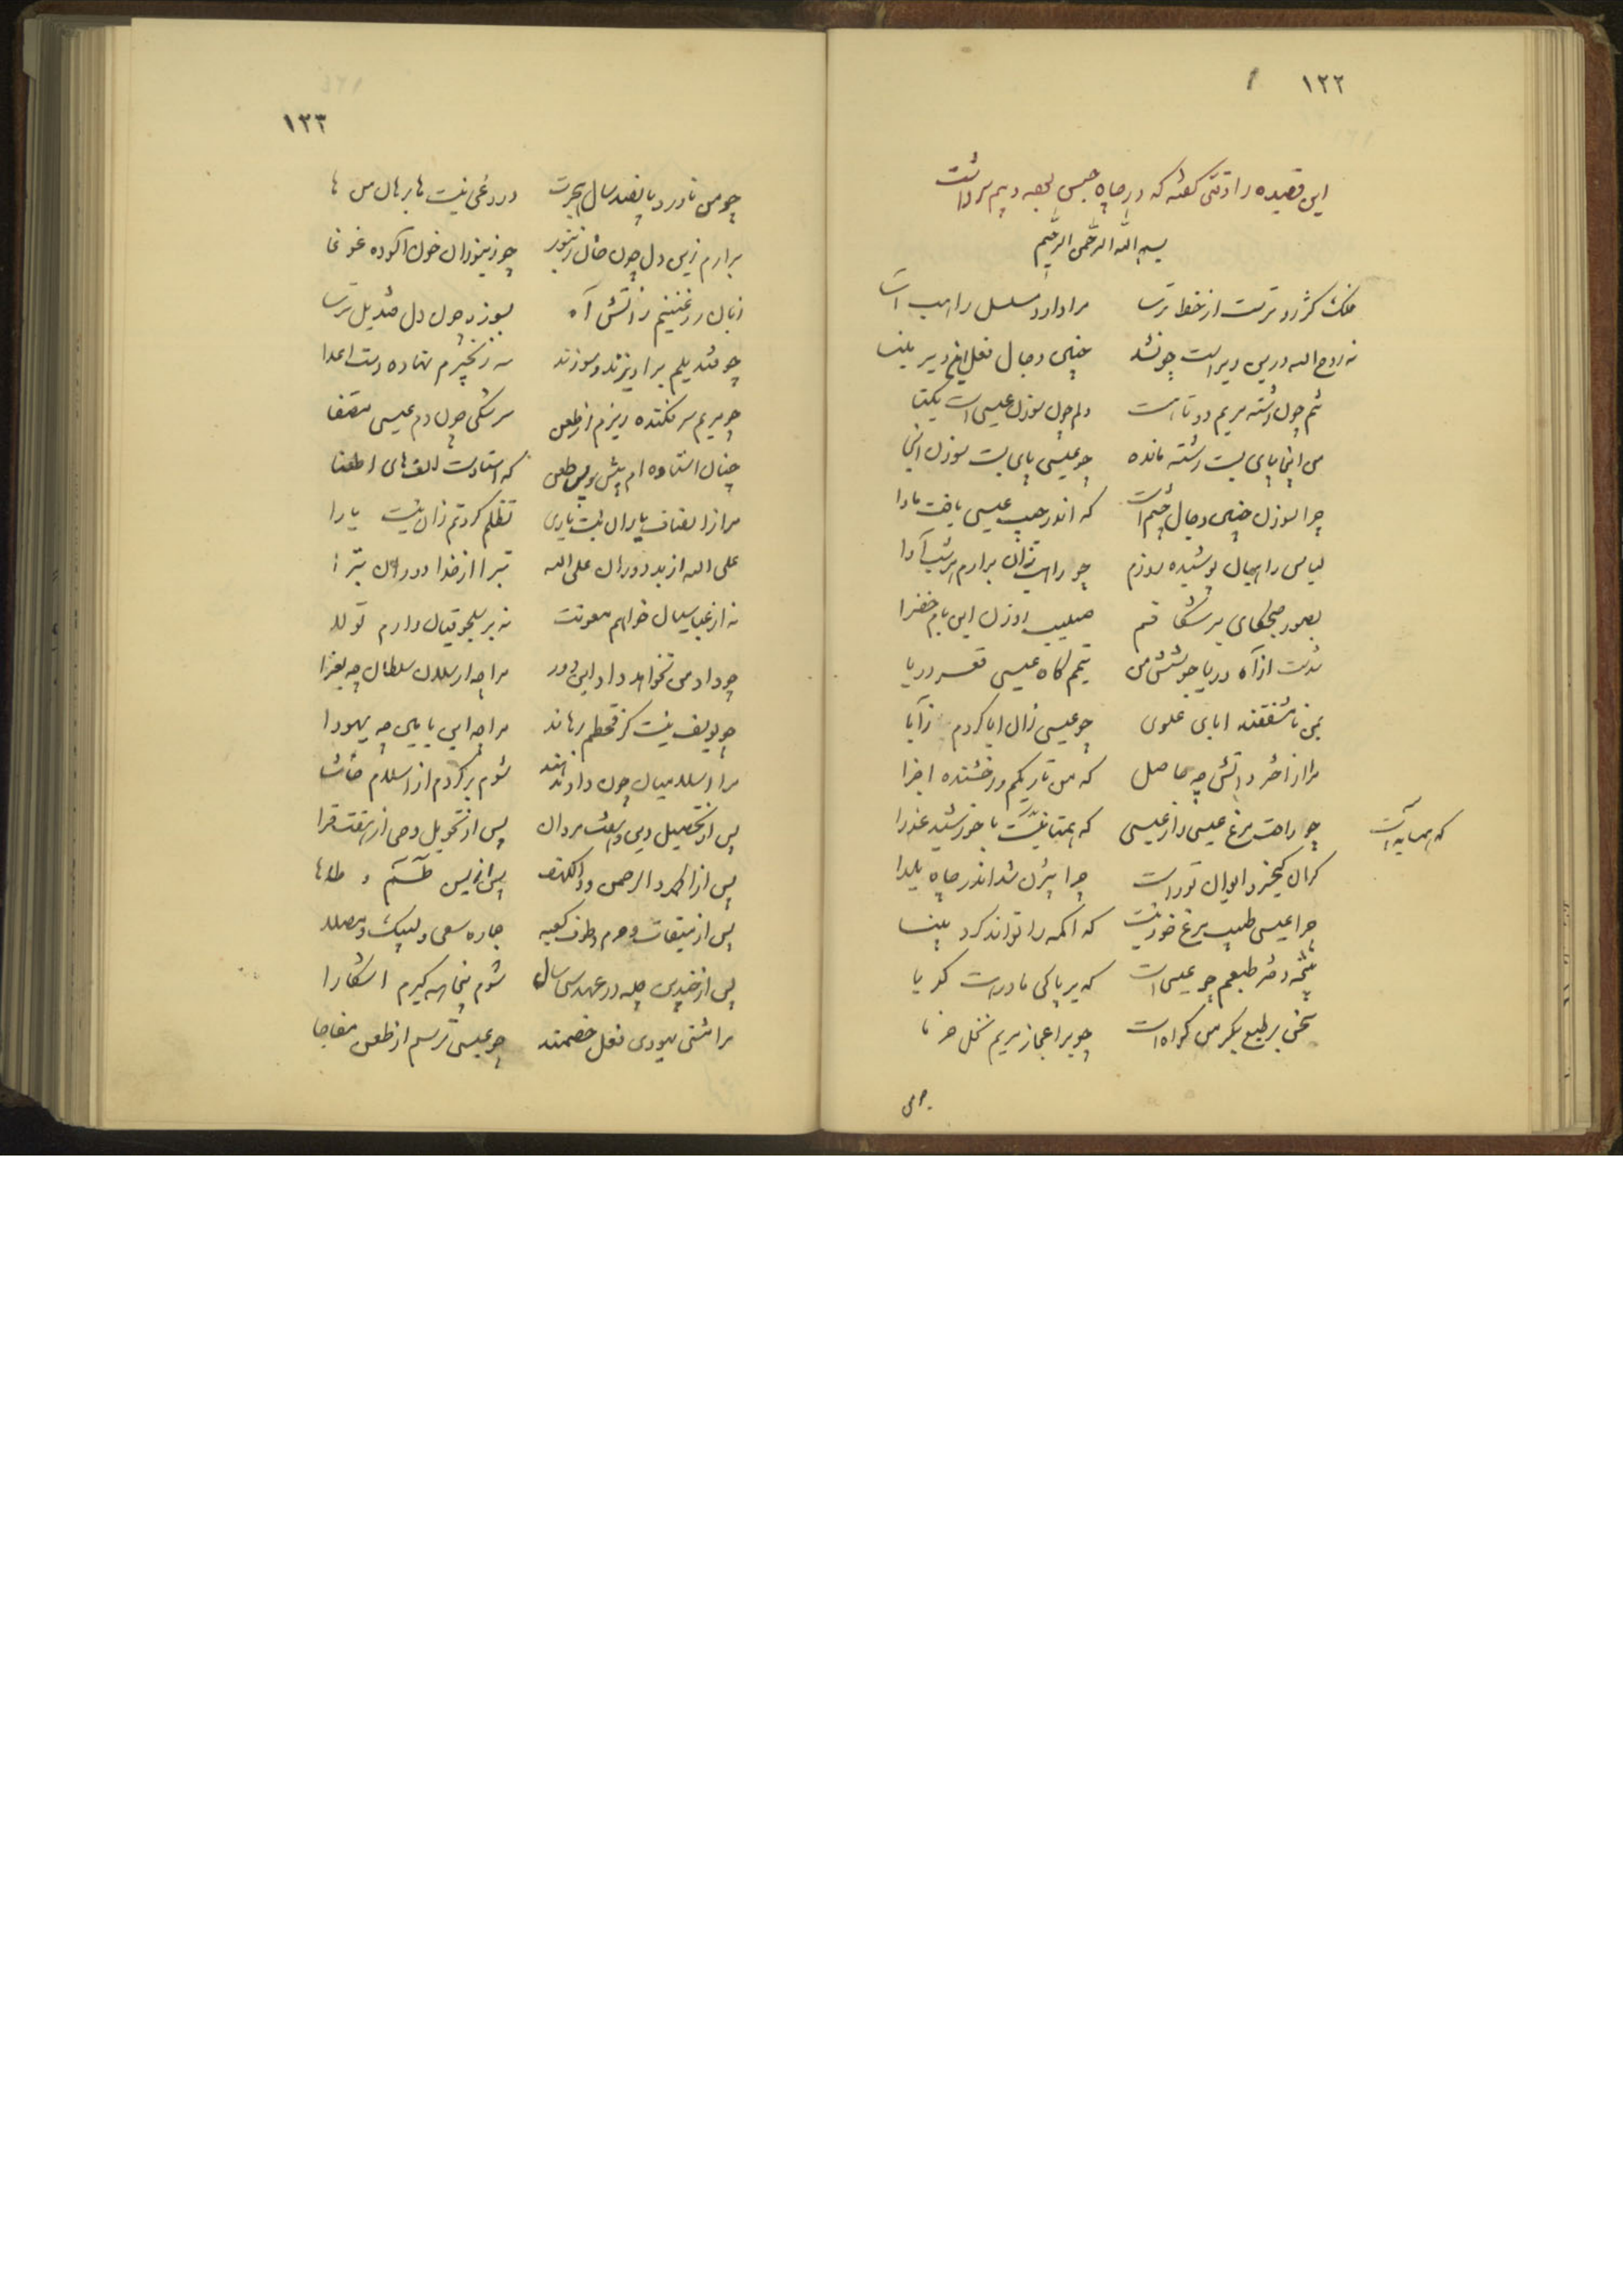 ۱۲۲
این قصیده را وقتی گفته که در چاه حبس بجهه دیم سر داشت
بسم الله الرحمن الرحیم
فلک کژرو ترست از خط ترسا مرا دارد مسلسل راهب آسا
نه روح الله درین دیر است چون شد چنین دجال فعل این دیر مینا
تنم چون رشته مریم دو تا است دلم چون سوزن عیسی است یکتا
من اینجا پای بست رشته مانده چو عیسی پای بست سوزن اینجا
چرا سوزن چنین دجال چشم است که اندر جیب عیسی یافت مأوا
لباس راهبان پوشیده روزم چو راهب زان برارم هر شب آوا
بصور صبحگاهی بر شکافم صلیب روزن این بام خضرا
شدست از آه دریا جوشش من تیمم گاه عیسی قعر دریا
بمن نامشفقند ابای علوی چو عیسی زان ابا کردم ز آبا
مرا از اختر دانش چه حاصل که من تاریکم و رخشنده اجزا
چه راحت مرغ عیسی را ز عیسی که همتا نیست با خورشید عذرا
که همسایه است
گر آن کیخسرو ایوان نور است چرا بیژن شد اندر چاه یلدا
چرا عیسی طبیب مرغ خود نیست که اکمه را تواند کرد بینا
نتیجه دختر طبعم چو عیسی است که بر پاکی مادر است گویا
سخن بر طبع بکر من گواه است چو بر اعجاز مریم نخل خرما
چو من
۱۲۳
چو من ناورد پانصد سال هجرت دروغی نیست ها برهان من ها
برارم زین دل چون خان زنبور چو زنبوران خون آلوده غوغا
زبان روغنینم ز آتش آه بسوزد چون دل قندیل ترسا
چو قندیلم برآویزند و سوزند سه زنجیرم نهاده دست اعدا
چو مریم سر فکنده ریزم از طعن سرشکی چون دم عیسی مصفا
چنان استاده‌ام پیش و پس طعن که استادست الف‌های اطعنا
مرا ز انصاف یاران نیست یاری تظلم کردنم زان نیست یارا
علی الله از بد دوران علی الله تبرا از خدا دوران تبرا
نه از عباسیان خواهم معونت نه بر سلجوقیان دارم تولا
چو داد من نخواهد داد این دور مرا چه ارسلان سلطان چه بغرا
چو یوسف نیست کز قحطم رهاند مرا چه ابن یامین چه یهودا
مرا اسلامیان چون داد ندهند شوم برگردم از اسلام حاشا
پس از تحصیل دین از هفت مردان پس از تحویل وحی از هفت قرا
پس از الحمد و الرحمن و الکهف پس از یس طسم و طاها
پس از میقات و حرم و طوف کعبه جمار و سعی و لبیک و مصلا
پس از چندین چله در عهد سی سال شوم پنجاهه گیرم آشکارا
مرا مشتی یهودی فعل خصمند چو عیسی ترسم از طعن مفاجا